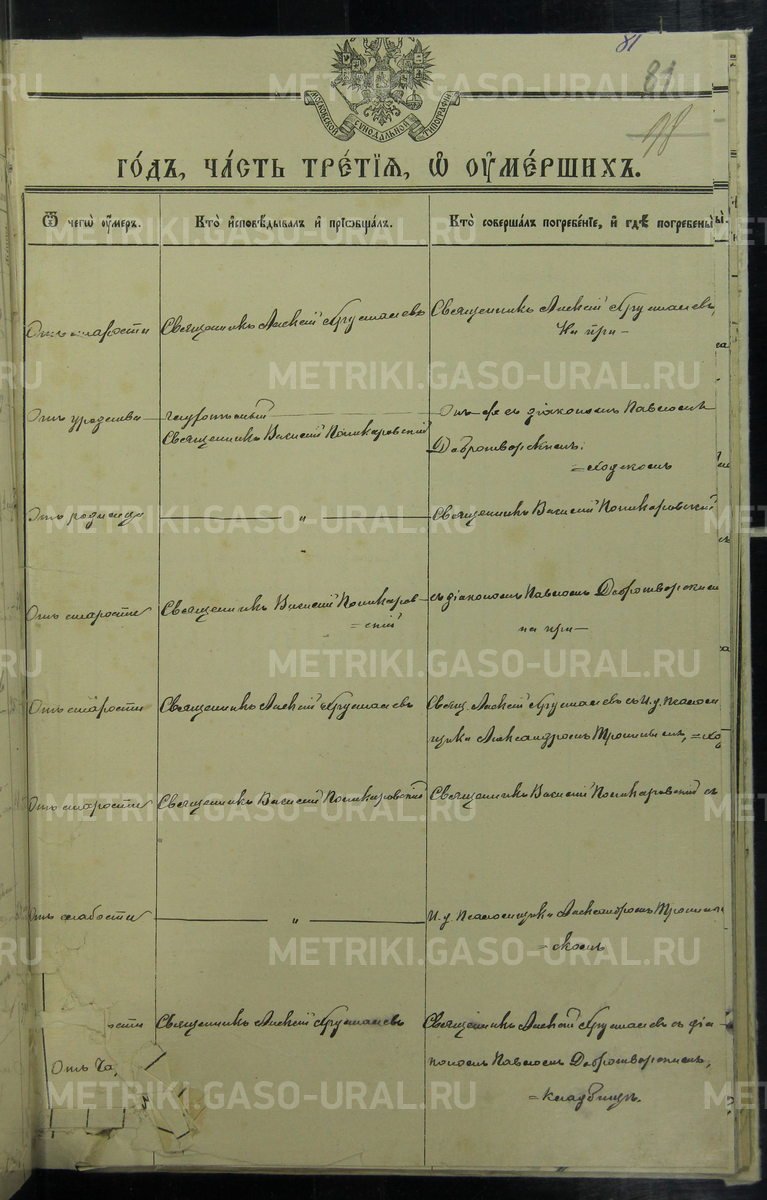 81
81
98
МОСКОВСКОЙ СѴНОДАЛЬНОЙ ТИПОГРАФІИ
ГО́ДЪ, ЧА́СТЬ ТРЕ́ТІѦ, Ѡ҆ ОУ҆МЕ́РШИХЪ.
Ѿ чегѡ̀ оу҆́меръ.
Кто̀ и҆сповѣ́дывалъ и҆ прїѡбща́лъ.
Кто̀ соверша́лъ погребе́нїе, и҆ гдѣ̀ погребены̀
Отъ старости
Священникъ Алексій Хрусталевъ
Священникъ Алексій Хрусталевъ,
На при-
Отъ уродства
глухонѣмый
Священникъ Василій Поликаровскій
Онъ же съ діакономъ Павломъ
Доброторскимъ.
=ходскомъ
Отъ родимца
„
Священникъ Василій Поликаровскій
Отъ старости
Священникъ Василій Поликаров-
=скій
съ діакономъ Павломъ Добротворскимъ
на при-
Отъ старости
Священникъ Алексій Хрусталевъ
Свящ. Алексій Хрусталевъ съ И. д. псалом
щика Александромъ =ход
Отъ старости
Священникъ Василій Поликаровскій
Священникъ Василій Поликаровскій съ
Отъ слабости
„
И. д. Псаломщика Александромъ
=скомъ
ости
Священникъ Алексій Хрусталевъ
Священникъ Алексій Хрусталевъ съ діа-
кономъ Павломъ Добротворскимъ,
Отъ ча,
=кладбищѣ.
METRIKI.GASO-URAL.RU